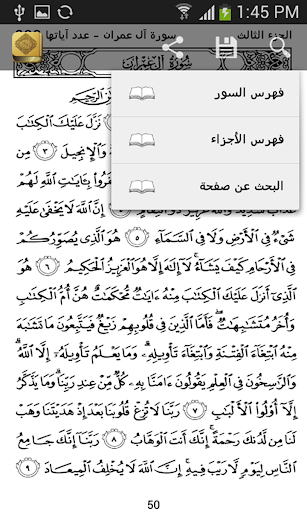 1:45 PM
الجزء الثالث
سورة آل عمران - عدد آياتها
سُورَةُ آلِ عِمْرَانَ
فهرس السور
فهرس الأجزاء
البحث عن صفحة
نَزَّلَ عَلَيْكَ ٱلْكِتَٰبَ
وَٱلْإِنجِيلَ ٣
بِـَٔايَٰتِ ٱللَّهِ لَهُمْ
عَذَابٌ شَدِيدٌ وَٱللَّهُ عَزِيزٌ ذُو ٱنتِقَامٍ ٤ إِنَّ ٱللَّهَ لَا يَخْفَىٰ عَلَيْهِ
شَىْءٌ فِى ٱلْأَرْضِ وَلَا فِى ٱلسَّمَآءِ ٥ هُوَ ٱلَّذِى يُصَوِّرُكُمْ
فِى ٱلْأَرْحَامِ كَيْفَ يَشَآءُ لَآ إِلَٰهَ إِلَّا هُوَ ٱلْعَزِيزُ ٱلْحَكِيمُ ٦ هُوَ
ٱلَّذِىٓ أَنزَلَ عَلَيْكَ ٱلْكِتَٰبَ مِنْهُ ءَايَٰتٌ مُّحْكَمَٰتٌ هُنَّ أُمُّ ٱلْكِتَٰبِ
وَأُخَرُ مُتَشَٰبِهَٰتٌ فَأَمَّا ٱلَّذِينَ فِى قُلُوبِهِمْ زَيْغٌ فَيَتَّبِعُونَ مَا تَشَٰبَهَ
مِنْهُ ٱبْتِغَآءَ ٱلْفِتْنَةِ وَٱبْتِغَآءَ تَأْوِيلِهِۦ وَمَا يَعْلَمُ تَأْوِيلَهُۥٓ إِلَّا ٱللَّهُ
وَٱلرَّٰسِخُونَ فِى ٱلْعِلْمِ يَقُولُونَ ءَامَنَّا بِهِۦ كُلٌّ مِّنْ عِندِ رَبِّنَا وَمَا يَذَّكَّرُ
إِلَّآ أُو۟لُوا۟ ٱلْأَلْبَٰبِ ٧ رَبَّنَا لَا تُزِغْ قُلُوبَنَا بَعْدَ إِذْ هَدَيْتَنَا وَهَبْ
لَنَا مِن لَّدُنكَ رَحْمَةً إِنَّكَ أَنتَ ٱلْوَهَّابُ ٨ رَبَّنَآ إِنَّكَ جَامِعُ
ٱلنَّاسِ لِيَوْمٍ لَّا رَيْبَ فِيهِ إِنَّ ٱللَّهَ لَا يُخْلِفُ ٱلْمِيعَادَ ٩
50